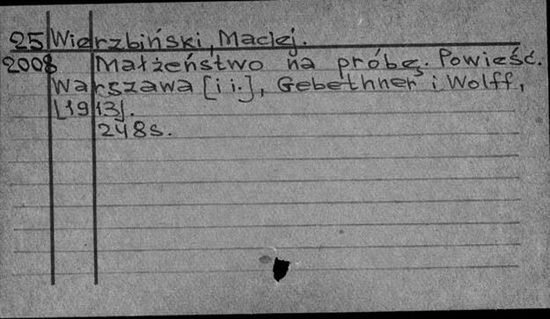 25 Wierzbiński, Maciej.
2008 Małżeństwo na próbę. Powieść.
Warszawa [i i.], Gebethner i Wolff,
[1913].
248 s.